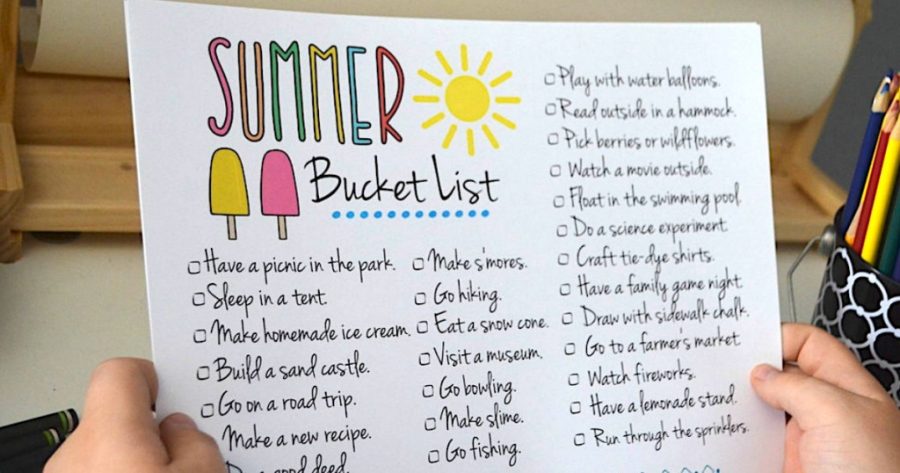 SUMMER
Bucket List
☐ Have a picnic in the park.
☐ Sleep in a tent.
☐ Make homemade ice cream.
☐ Build a sand castle.
☐ Go on a road trip.
Make a new recipe.
good deed.
☐ Make s'mores.
☐ Go hiking.
☐ Eat a snow cone.
☐ Visit a museum.
☐ Go bowling.
☐ Make slime.
☐ Go fishing.
☐ Play with water balloons.
☐ Read outside in a hammock.
☐ Pick berries or wildflowers.
☐ Watch a movie outside.
☐ Float in the swimming pool.
☐ Do a science experiment.
☐ Craft tie-dye shirts.
☐ Have a family game night.
☐ Draw with sidewalk chalk.
☐ Go to a farmer's market.
☐ Watch fireworks.
☐ Have a lemonade stand.
☐ Run through the sprinklers.